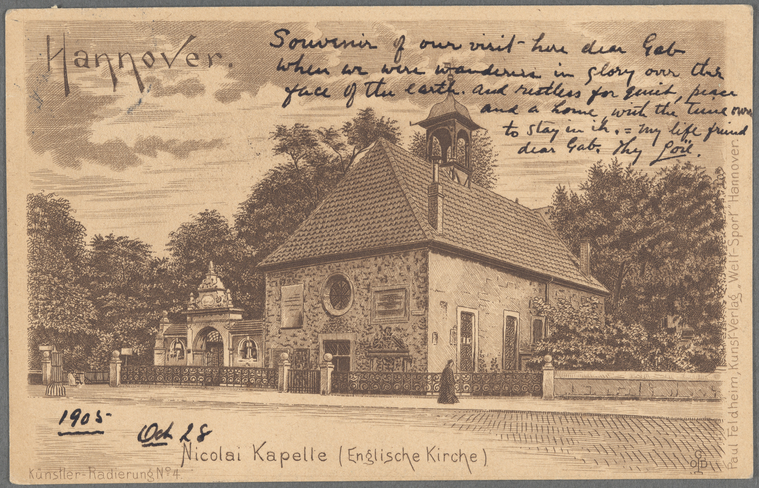 Hannover.
Souvenir of our visit here dear Gab
when we were wanderers in glory over the
face of the earth. and restless for quiet, peace
and a home, with the time own
to stay in it. = my life friend
dear Gab. Thy
1905
Oct 28
Nicolai Kapelle (Englische Kirche)
Künstler-Radierung No 4
Paul Feldheim, Kunst-Verlag „Welt-Sport" Hannover.